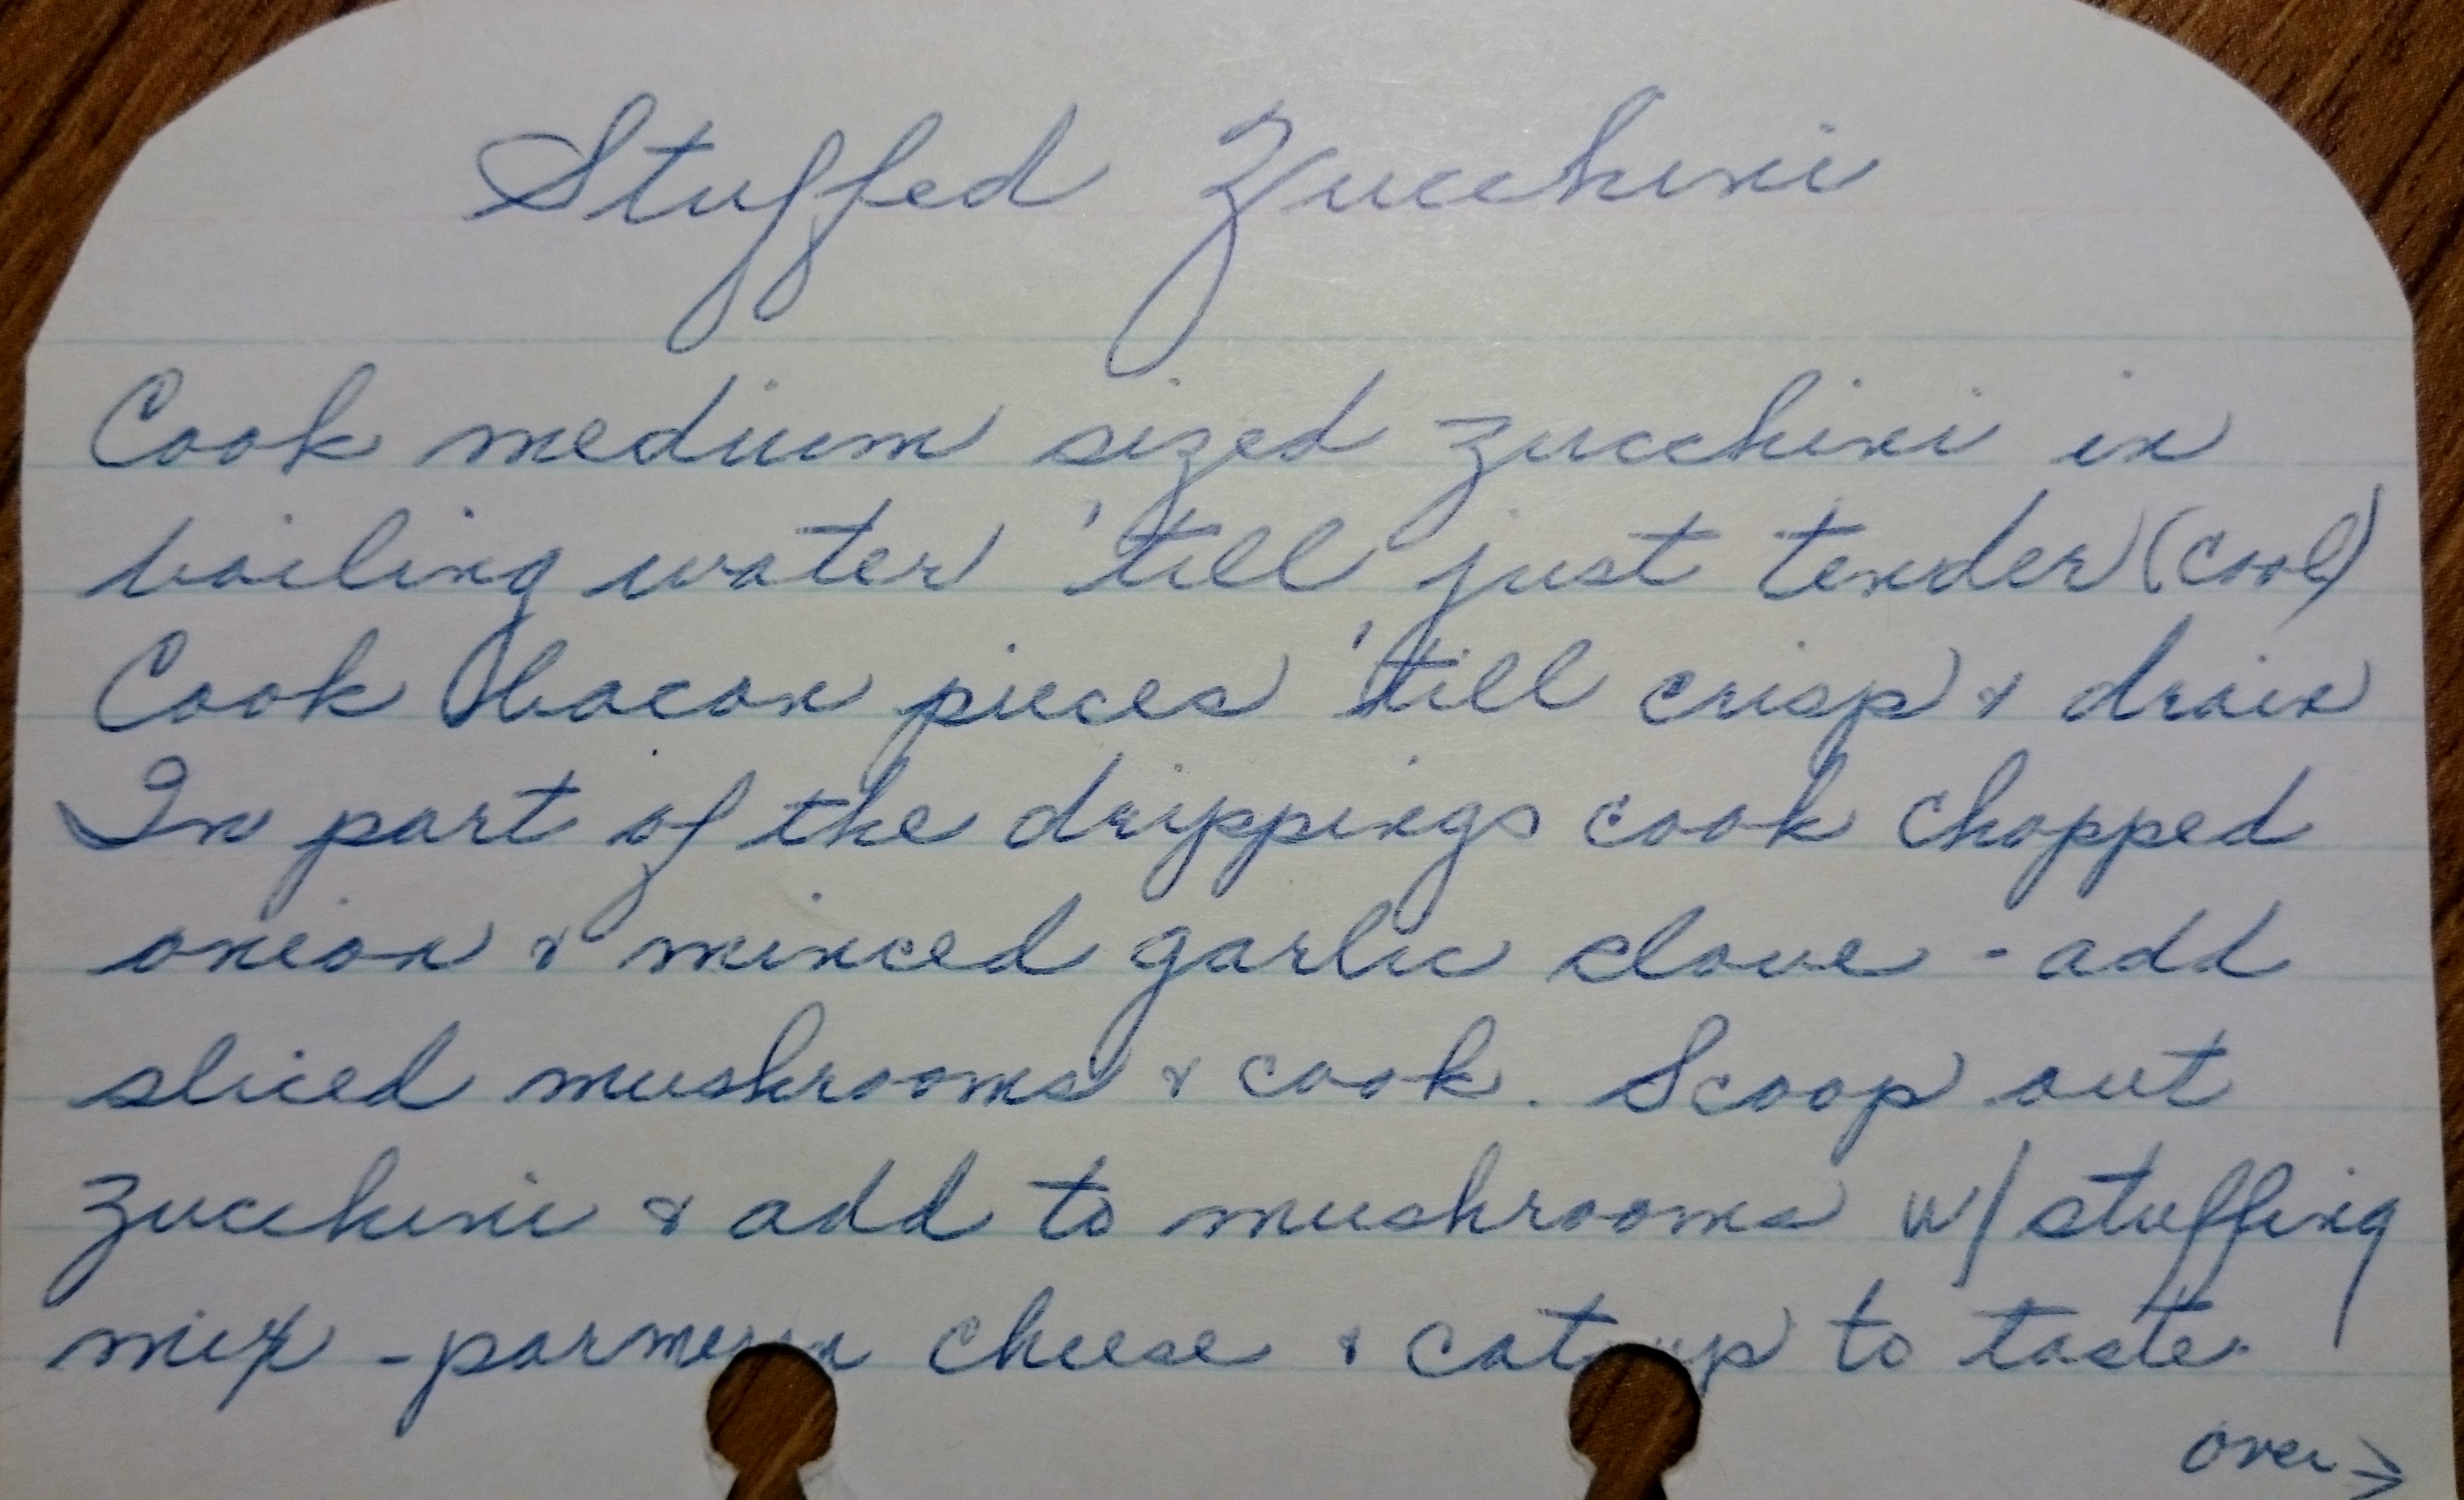 Stuffed Zucchini
Cook medium sized zucchini in
boiling water 'till just tender (cool)
Cook bacon pieces 'till crisp & drain
In part of the drippings cook chopped
onion & minced garlic clove - add
sliced mushrooms & cook. Scoop out
zucchini & add to mushrooms w/ stuffing
mix - cheese & to taste.
over →